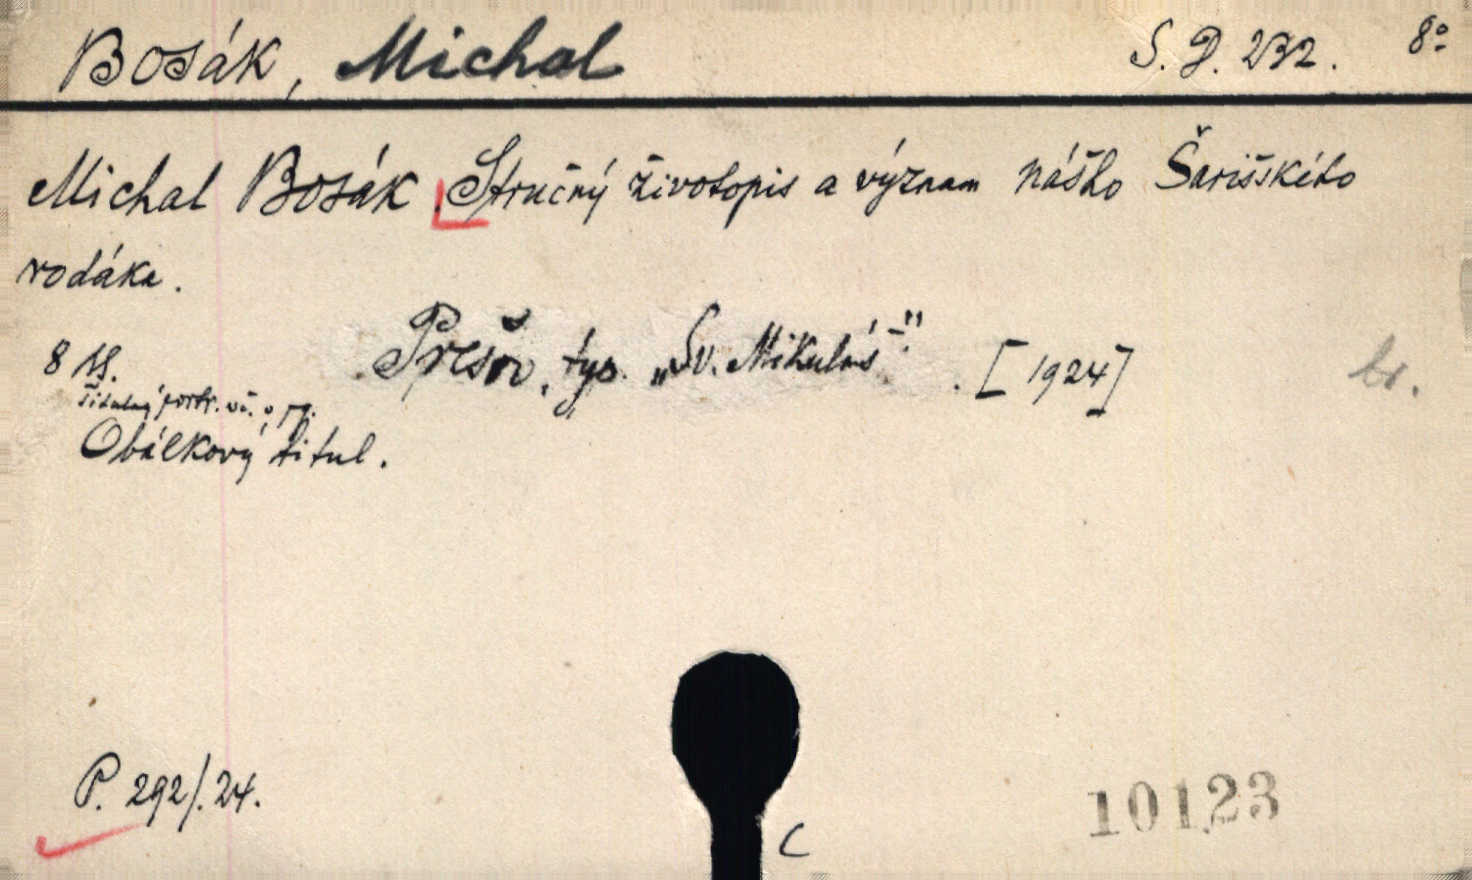 Bosák, Michal S. D. 232. 8°
Michal Bosák. Stručný životopis a význam nášho Šarišského
rodáka.
Prešov, typ. „Sv. Mikuláš". [1924] br.
8 
Obálkový titul.
P. 292/.24.
10123
C